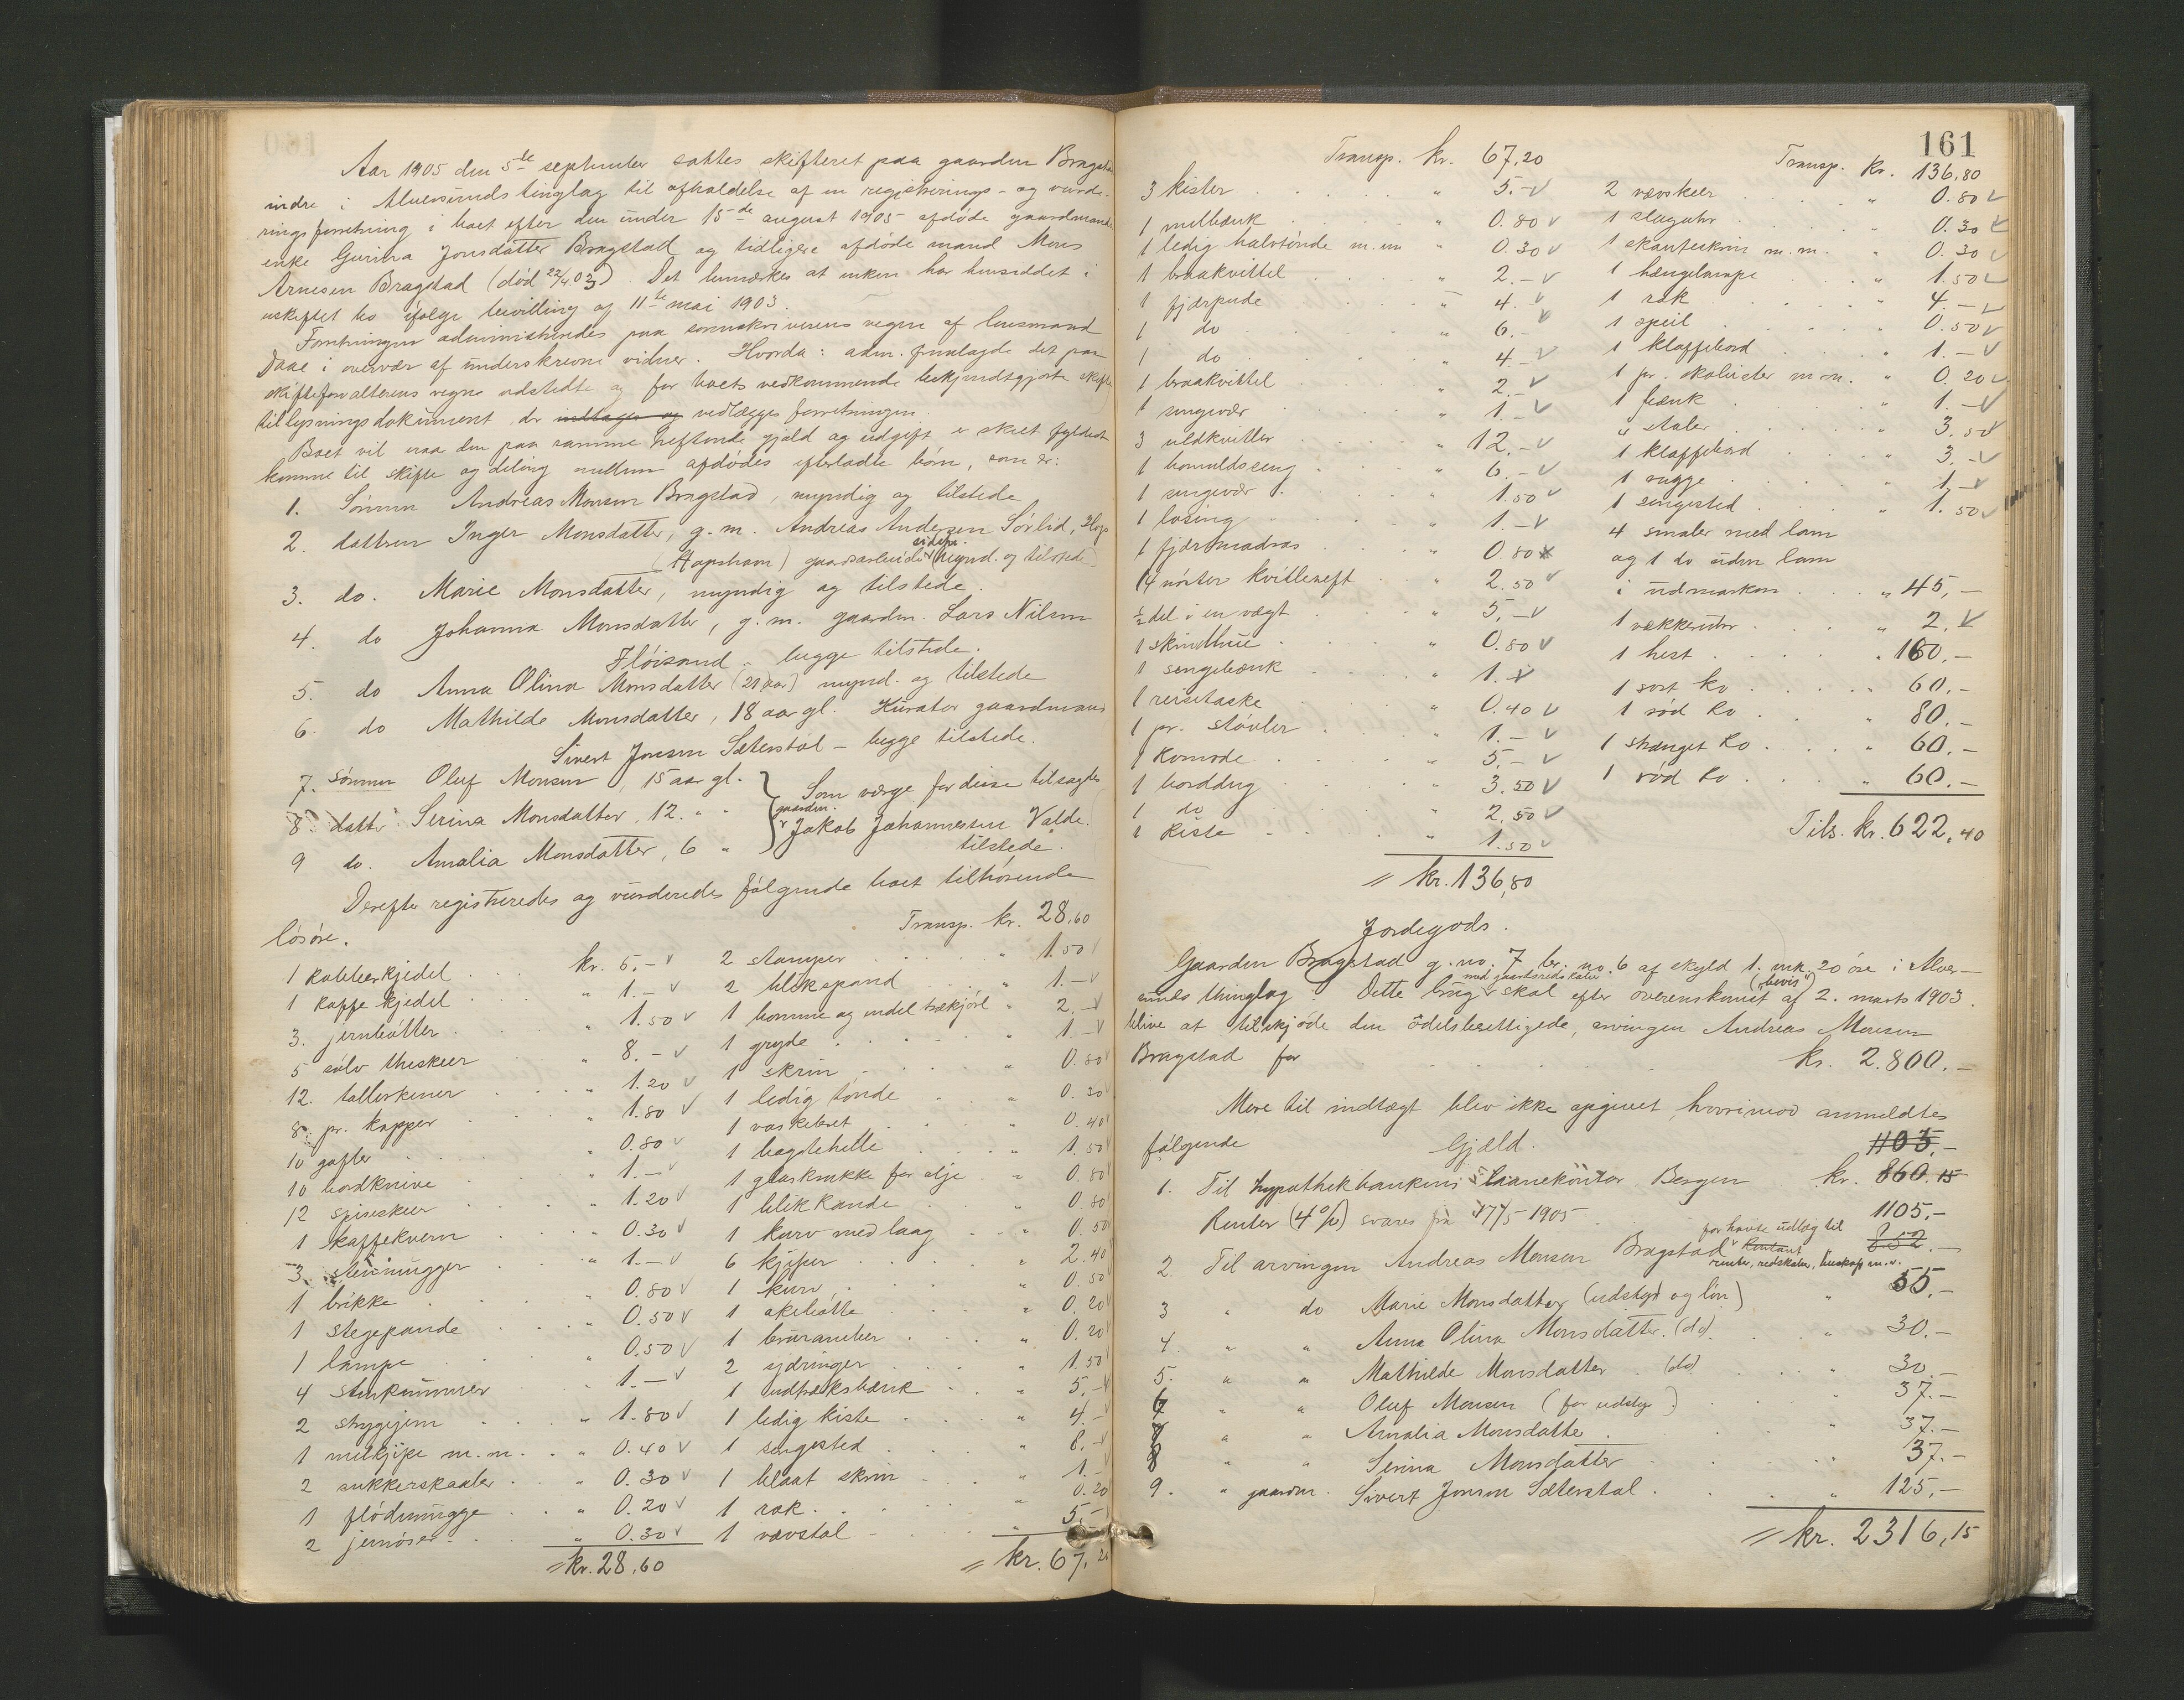 Aar 1905 den 5te september sattes skifteret paa gaarden Bragstad
indre i Alversunds tinglag til afholdelse af en registrerings- og vurde-
ringsforretning i boet efter den under 15de august 1905 afdøde gaardmands
enke Gurina Jonsdatter Bragstad og tidligere afdøde mand Mons
Arnesen Bragstad (død 22/4.03). Det bemærkes at enken har hensiddet i
uskiftet bo ifølge bevilling af 11te mai 1903.
Forretningen administreredes paa sorenskriverens vegne af lensmand
Daae i overvær af underskrevne vidner. Hvorda: adm. fremlagde det paa
skifteforvalterens vegne udstedte og for boets vedkommende bekjendtgjorte skifte
tillysningsdokument, der indtages og vedlægges forretningen.
Boet vil naa den paa samme heftende gjæld og udgift er skeet fyldest
komme til skifte og deling mellem afdødes efterladte børn, som er:
1. Sønnen Andreas Monsen Bragstad, myndig og tilstede
2. datteren Inger Monsdatter, g. m. Andreas Andersen Sørlid, Hops
(Hopsham) gaardsarbeider (mynd. og tilstede)
3. do. Marie Monsdatter, myndig og tilstede.
4. do Johanna Monsdatter, g. m. gaardm. Lars Nilsen
Fløisand – begge tilstede.
5. do Anna Olina Monsdatter (21 aar) mynd. og tilstede
6. do Mathilde Monsdatter, 18 aar gl. Kurator gaardmand
Sivert Jonsen Sæterstøl – begge tilstede.
7. sønnen Oluf Monsen, 15 aar gl. Som værge for disse tilsagdes
8. datter Serina Monsdatter, 12. " " gaardm. Jakob Johannessen Valde.
9 do. Amalia Monsdatter, 6 " tilstede.
Derefter registreredes og vurderedes følgende boet tilhørende
løsøre.
1 kobberkjedel kr. 5.–
1 kaffekjedel " 1.–
3. jernbøtter " 1.50
5 sølv theskeer " 8.–
12. tallerkener " 1.20
8. pr. kopper " 1.80
10 gafler " 0.80
10 bordknive " 1.–
12 spiseskeer " 1.20
1 kaffekvern " 0.30
3. stenmugger " 1.–
1 brikke " 0.80
1 stegepande " 0.50
1 lampe " 0.50
4 stenkummer " 1.–
2 strygejern " 1.80
1 melkjipe m.m. " 0.40
2 sukkerskaaler " 0.30
1 flødemugge " 0.20
2 jernøser " 0.30
= kr. 28,60
Transp. kr. 28.60
2 stamper " 1.50
2 blikspand " 1.–
1 bomme og endel trækjørl " 2.–
1 gryde " 1.–
1 skrin " 0.80
1 ledig tønde " 0.30
1 vaskebret " 0.40
1 bagstehelle " 1.50
1 glaskrukke for olje " 0.80
1 blikkande " 0.80
1 kurv med laag " 0.50
6 kjiper " 2.40
1 kurv " 0.50
1 økebøtte " 0.20
1 brurambar " 0.20
2 sjdringer " 1.50
1 udtræksbænk " 5.–
1 ledig kiste " 4.–
1 sengested " 8.–
1 blaat skrin " 1.–
1 rok " 0.20
1 vævstol " 5.–
= kr. 67,20
161
Transp. kr. 67,20
3 kister " 5.–
1 melbænk " 0.80
1 ledig halvtønde m.m " 0.30
1 braakvittel " 2.–
1 fjærpude " 4.–
1 do " 6.–
1 do " 4.–
1 braakvittel " 2.–
1 sengevær " 1.–
3 uldkvitler " 12.–
1 bomuldsseng " 6.–
1 sengevær " 1.50
1 løsing " 1.–
1 fjærmadras " 0.80
14 nøster kvitleveft " 2.50
½ del i en vægt " 5.–
1 skindhue " 0.80
1 sengebænk " 1.–
1 reisetaske " 0.40
1 pr. støvler " 1.–
1 Komode " 5.–
1 borddug " 3.50
1 do " 2.50
1 Kiste " 1.50
= kr. 136,80
Transp. kr. 136,80
2 vævskeer " 0.80
1 slaguhr " 0.30
1 skanteskrin m.m. " 0.30
1 hængelampe " 1.50
1 rok " 4.–
1 speil " 0.50
1 klaffebord " 1.–
1 pr. skolister m.m. " 0.20
1 bænk " 1.–
4 stoler " 3.50
1 klaffebord " 3.–
1 vugge " 1.–
1 sengested " 1.50
4 smaler med lam
og 1 do uden lam
i udmarken " 45,–
1 vækkeruhr " 2.–
1 hest " 160.–
1 sort ko " 60.–
1 rød ko " 80.–
1 stranget ko " 60.–
1 rød ko " 60.–
Tils. kr. 622,40
Jordegods.
Gaarden Bragstad g.no. 7 br. no. 6 af skyld 1. mk. 20 øre i Alver-
sunds thinglag. Dette brug med gaardsredskaber skal efter overenskomst ("bevis") af 2. marts 1903.
blive at tilskjøde den odelsberettigede, arvingen Andreas Monsen
Bragstad for kr. 2.800.–
Mere til indtægt blev ikke opgivet, hvorimod anmeldtes
følgende Gjæld. 1105.–
1. Til hypothekbankens laanekontor Bergen kr. 860.15
Renter (4%) svares fra 17/5 1905
1105.–
2. Til arvingen Andreas Monsen Bragstad for havte udlæg til renter, redskaber, buskap m.v. 852.–
3 " do Marie Monsdatter (udstyr og løn) " 55.–
4. " " Anna Olina Monsdatter. (do) " 30.–
5. " " Mathilde Monsdatter (do) 30.–
6 " " Oluf Monsen (for udstyr) 37.–
7 " " Amalia Monsdatter " 37.–
8 " " Serina Monsdatter " 37.–
9. " gaardm. Sivert Jonsen Sæterstøl " 125.–
= kr. 2316,15